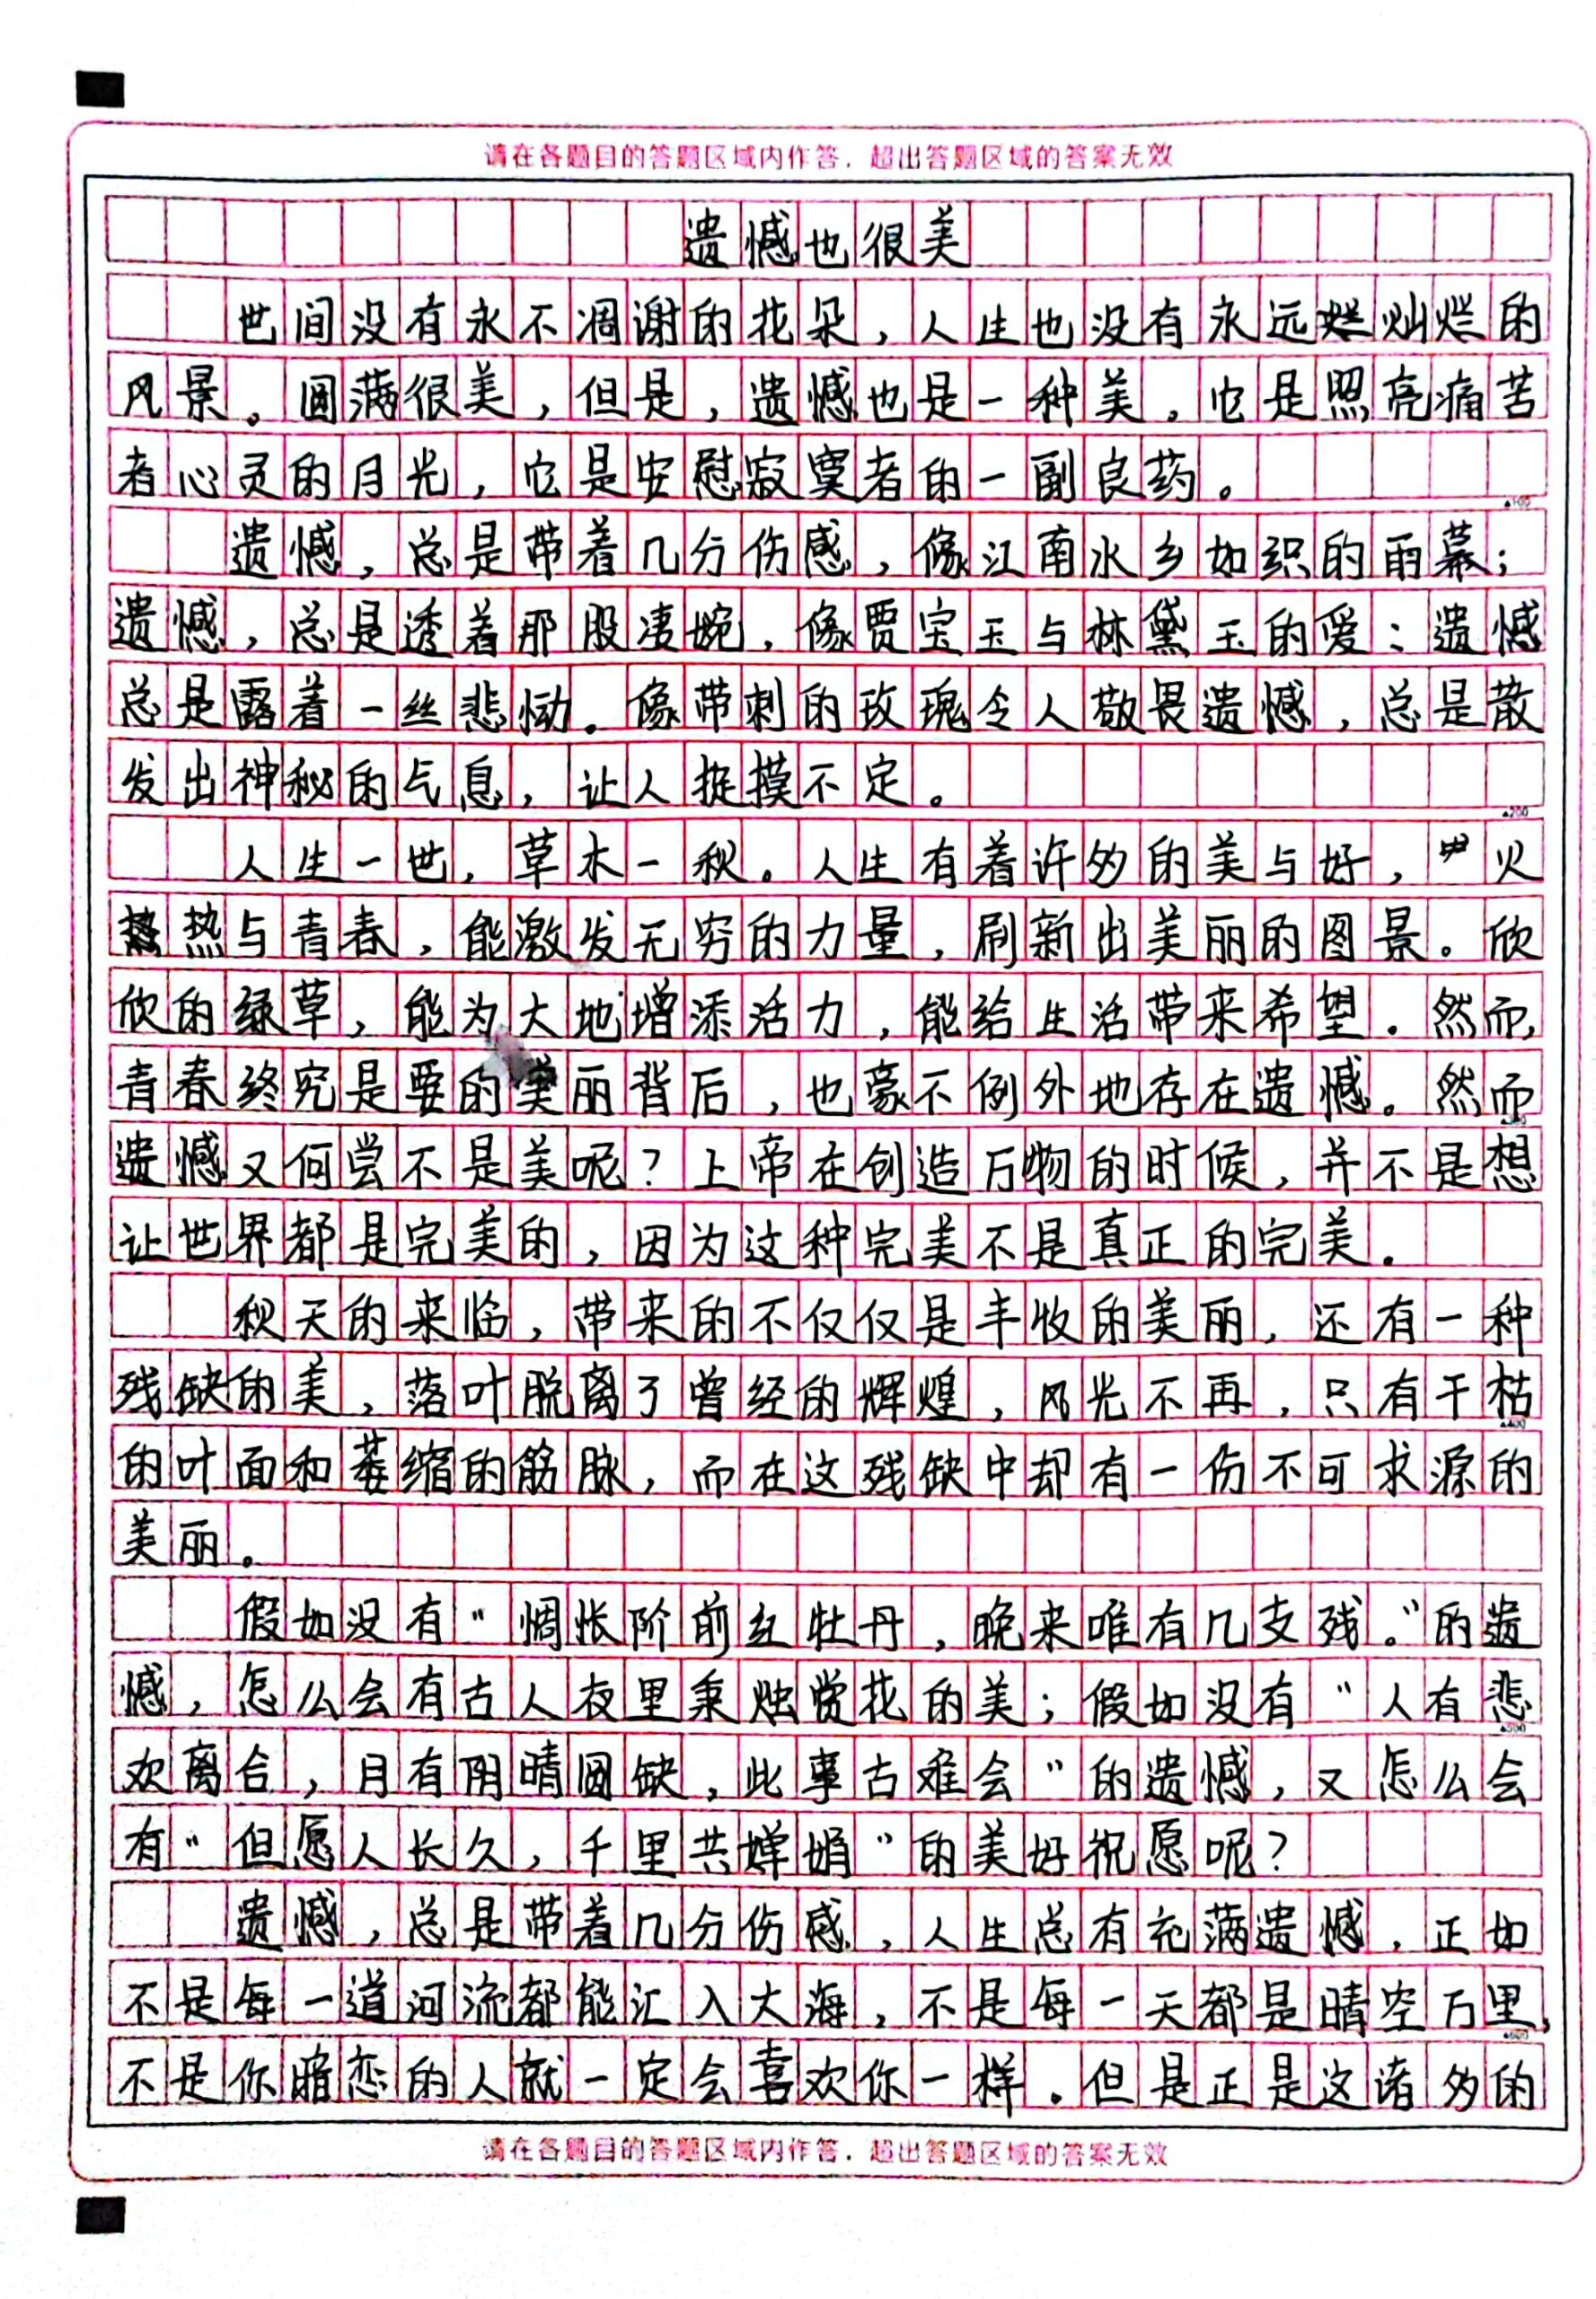 请在各题目的答题区域内作答，超出答题区域的答案无效
遗憾也很美
世间没有永不凋谢的花朵，人生也没有永远灿烂的
风景。圆满很美，但是，遗憾也是一种美。它是照亮痛苦
者心灵的月光，它是安慰寂寞者的一副良药。
▲100
遗憾，总是带着几分伤感，像江南水乡如织的雨幕；
遗憾，总是透着那股凄婉，像贾宝玉与林黛玉的爱；遗憾
总是露着一丝悲恸。像带刺的玫瑰令人敬畏遗憾，总是散
发出神秘的气息，让人捉摸不定。
▲200
人生一世，草木一秋。人生有着许多的美与好，火
热与青春，能激发无穷的力量，刷新出美丽的图景。欣
欣的绿草，能为大地增添活力，能给生活带来希望。然而，
青春终究是要的美丽背后，也豪不例外地存在遗憾。然而
▲300
遗憾又何尝不是美呢？上帝在创造万物的时候，并不是想
让世界都是完美的，因为这种完美不是真正的完美。
秋天的来临，带来的不仅仅是丰收的美丽，还有一种
残缺的美，落叶脱离了曾经的辉煌，风光不再，只有干枯
▲400
的叶面和萎缩的筋脉，而在这残缺中却有一伤不可求源的
美丽。
假如没有“惆怅阶前红牡丹，晚来唯有几支残。”的遗
憾，怎么会有古人夜里秉烛赏花的美；假如没有“人有悲
▲500
欢离合，月有阴晴圆缺，此事古难会”的遗憾，又怎么会
有“但愿人长久，千里共婵娟”的美好祝愿呢？
遗憾，总是带着几分伤感，人生总有充满遗憾，正如
不是每一道河流都能汇入大海，不是每一天都是晴空万里，
▲600
不是你暗恋的人就一定会喜欢你一样。但是正是这诸多的
请在各题目的答题区域内作答，超出答题区域的答案无效